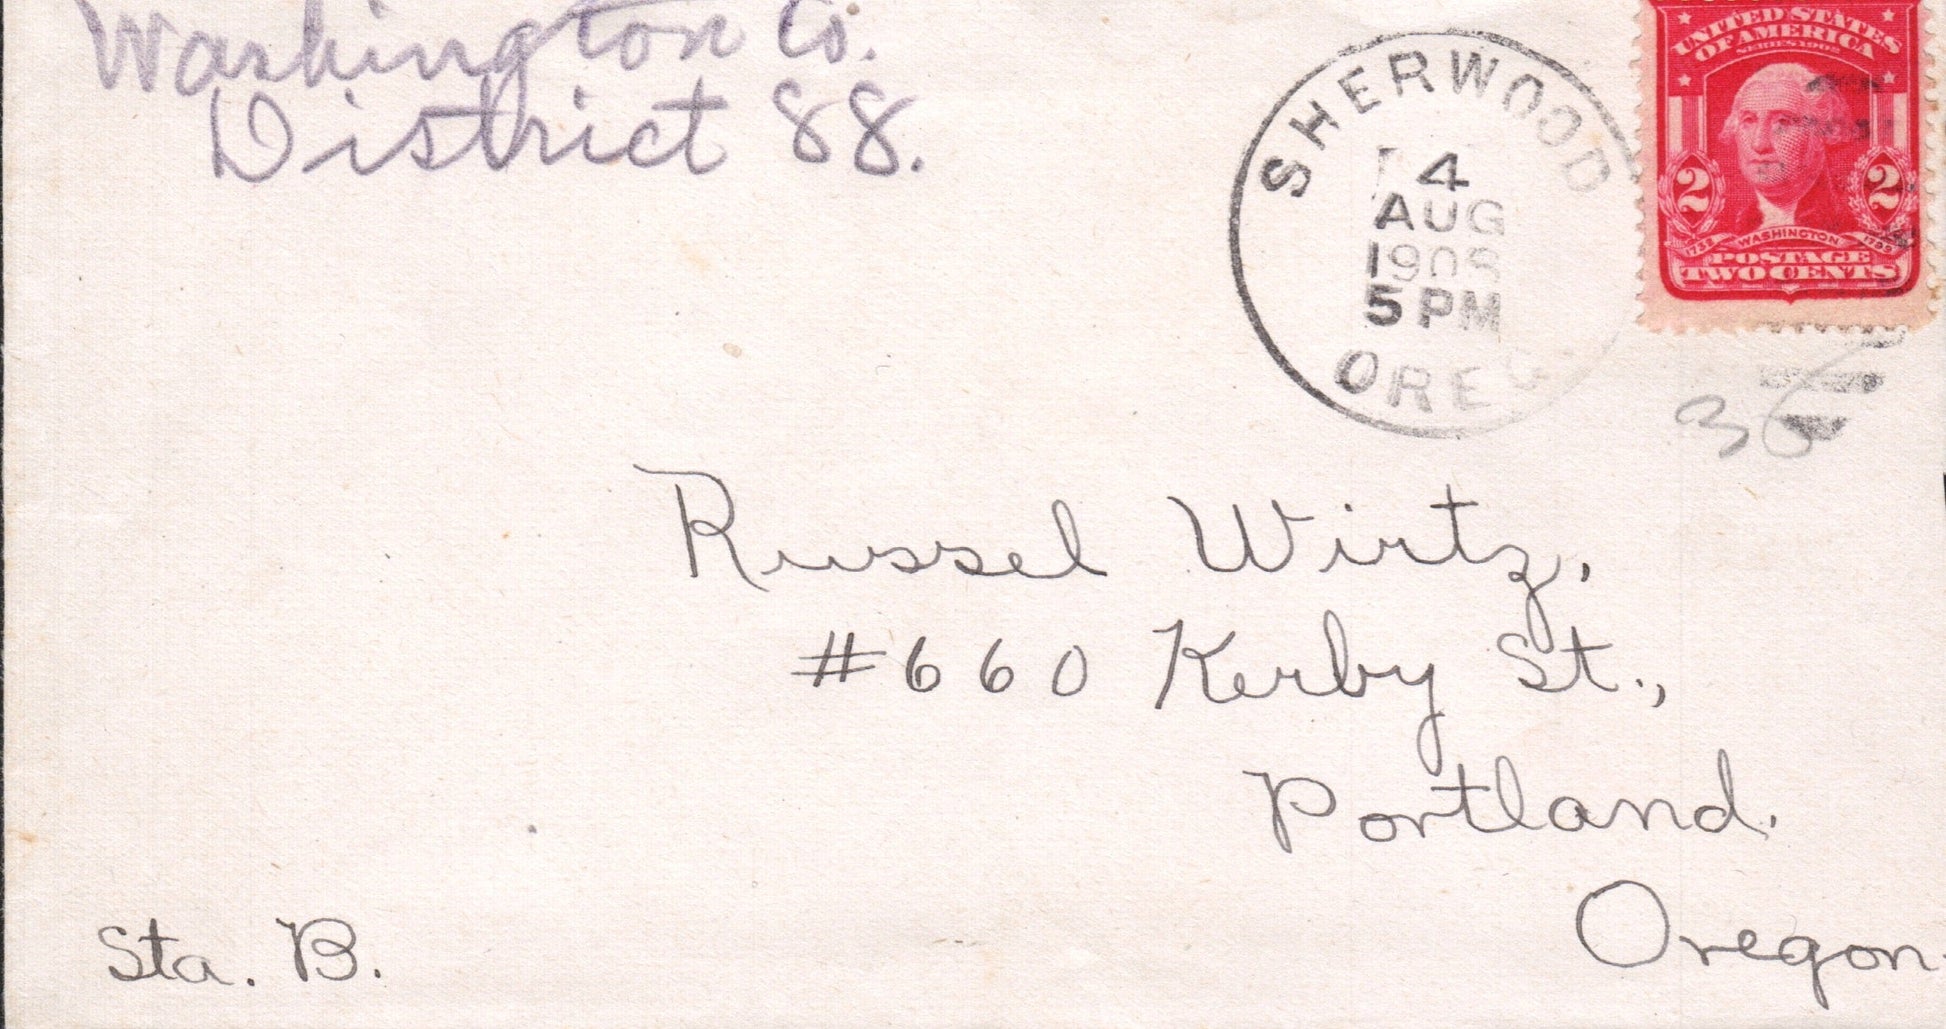 Washington Co.
District 88.
SHERWOOD
4
AUG
1908
5 PM
OREG.
UNITED STATES
OF AMERICA
SERIES 1902
2 2
1732 WASHINGTON 1799
POSTAGE
TWO CENTS
36
Russel Wirtz,
#660 Kerby St.,
Portland.
Oregon.
Sta. B.